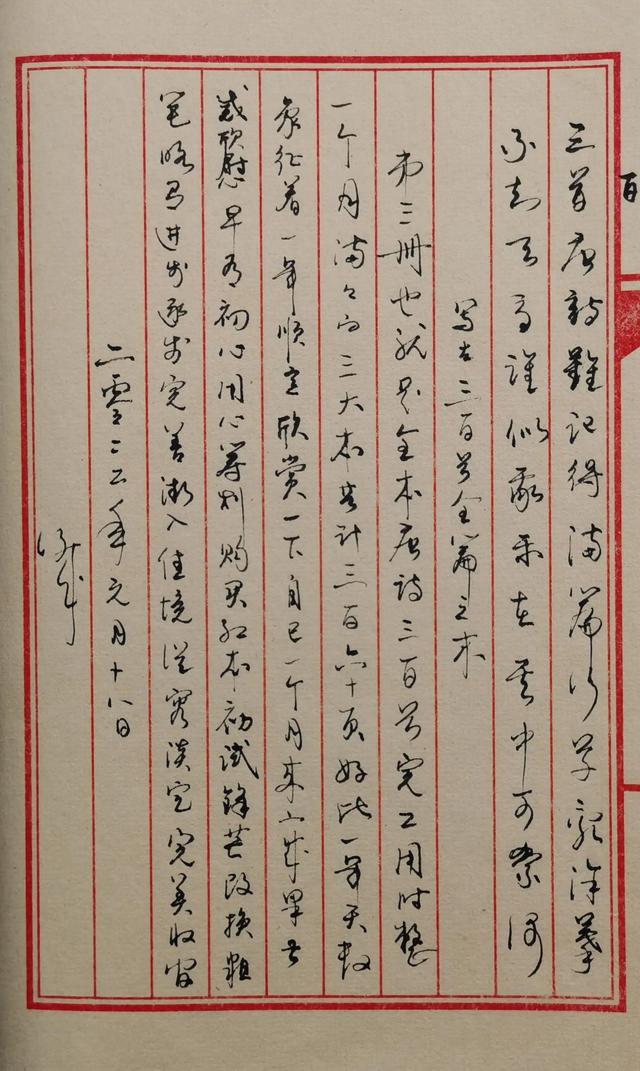 百
三百唐诗難记得满篇行草乱涂摹
不知天高谁似我乐在其中可奈何
写在三百首全篇之末
第三册也就是全本唐诗三百首完工用时整
一个月满々的三大本共计三百六十页好比一年天数
象征着一年顺意欣赏一下自己一个月来的成果甚
感欣慰早有初心用心筹划购买红本初试锋芒改换粗
笔略有进步逐步完善渐入佳境从容淡定完美收官
二零二二年元月十八日